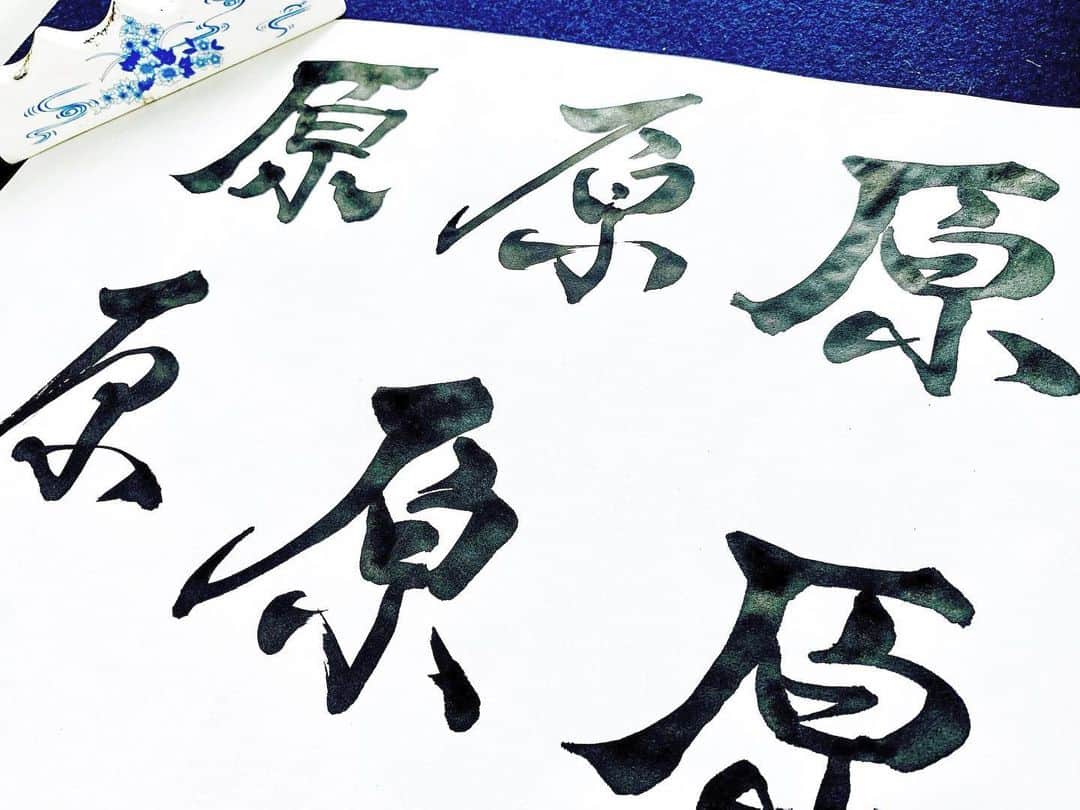 原 原 原
原 原 原